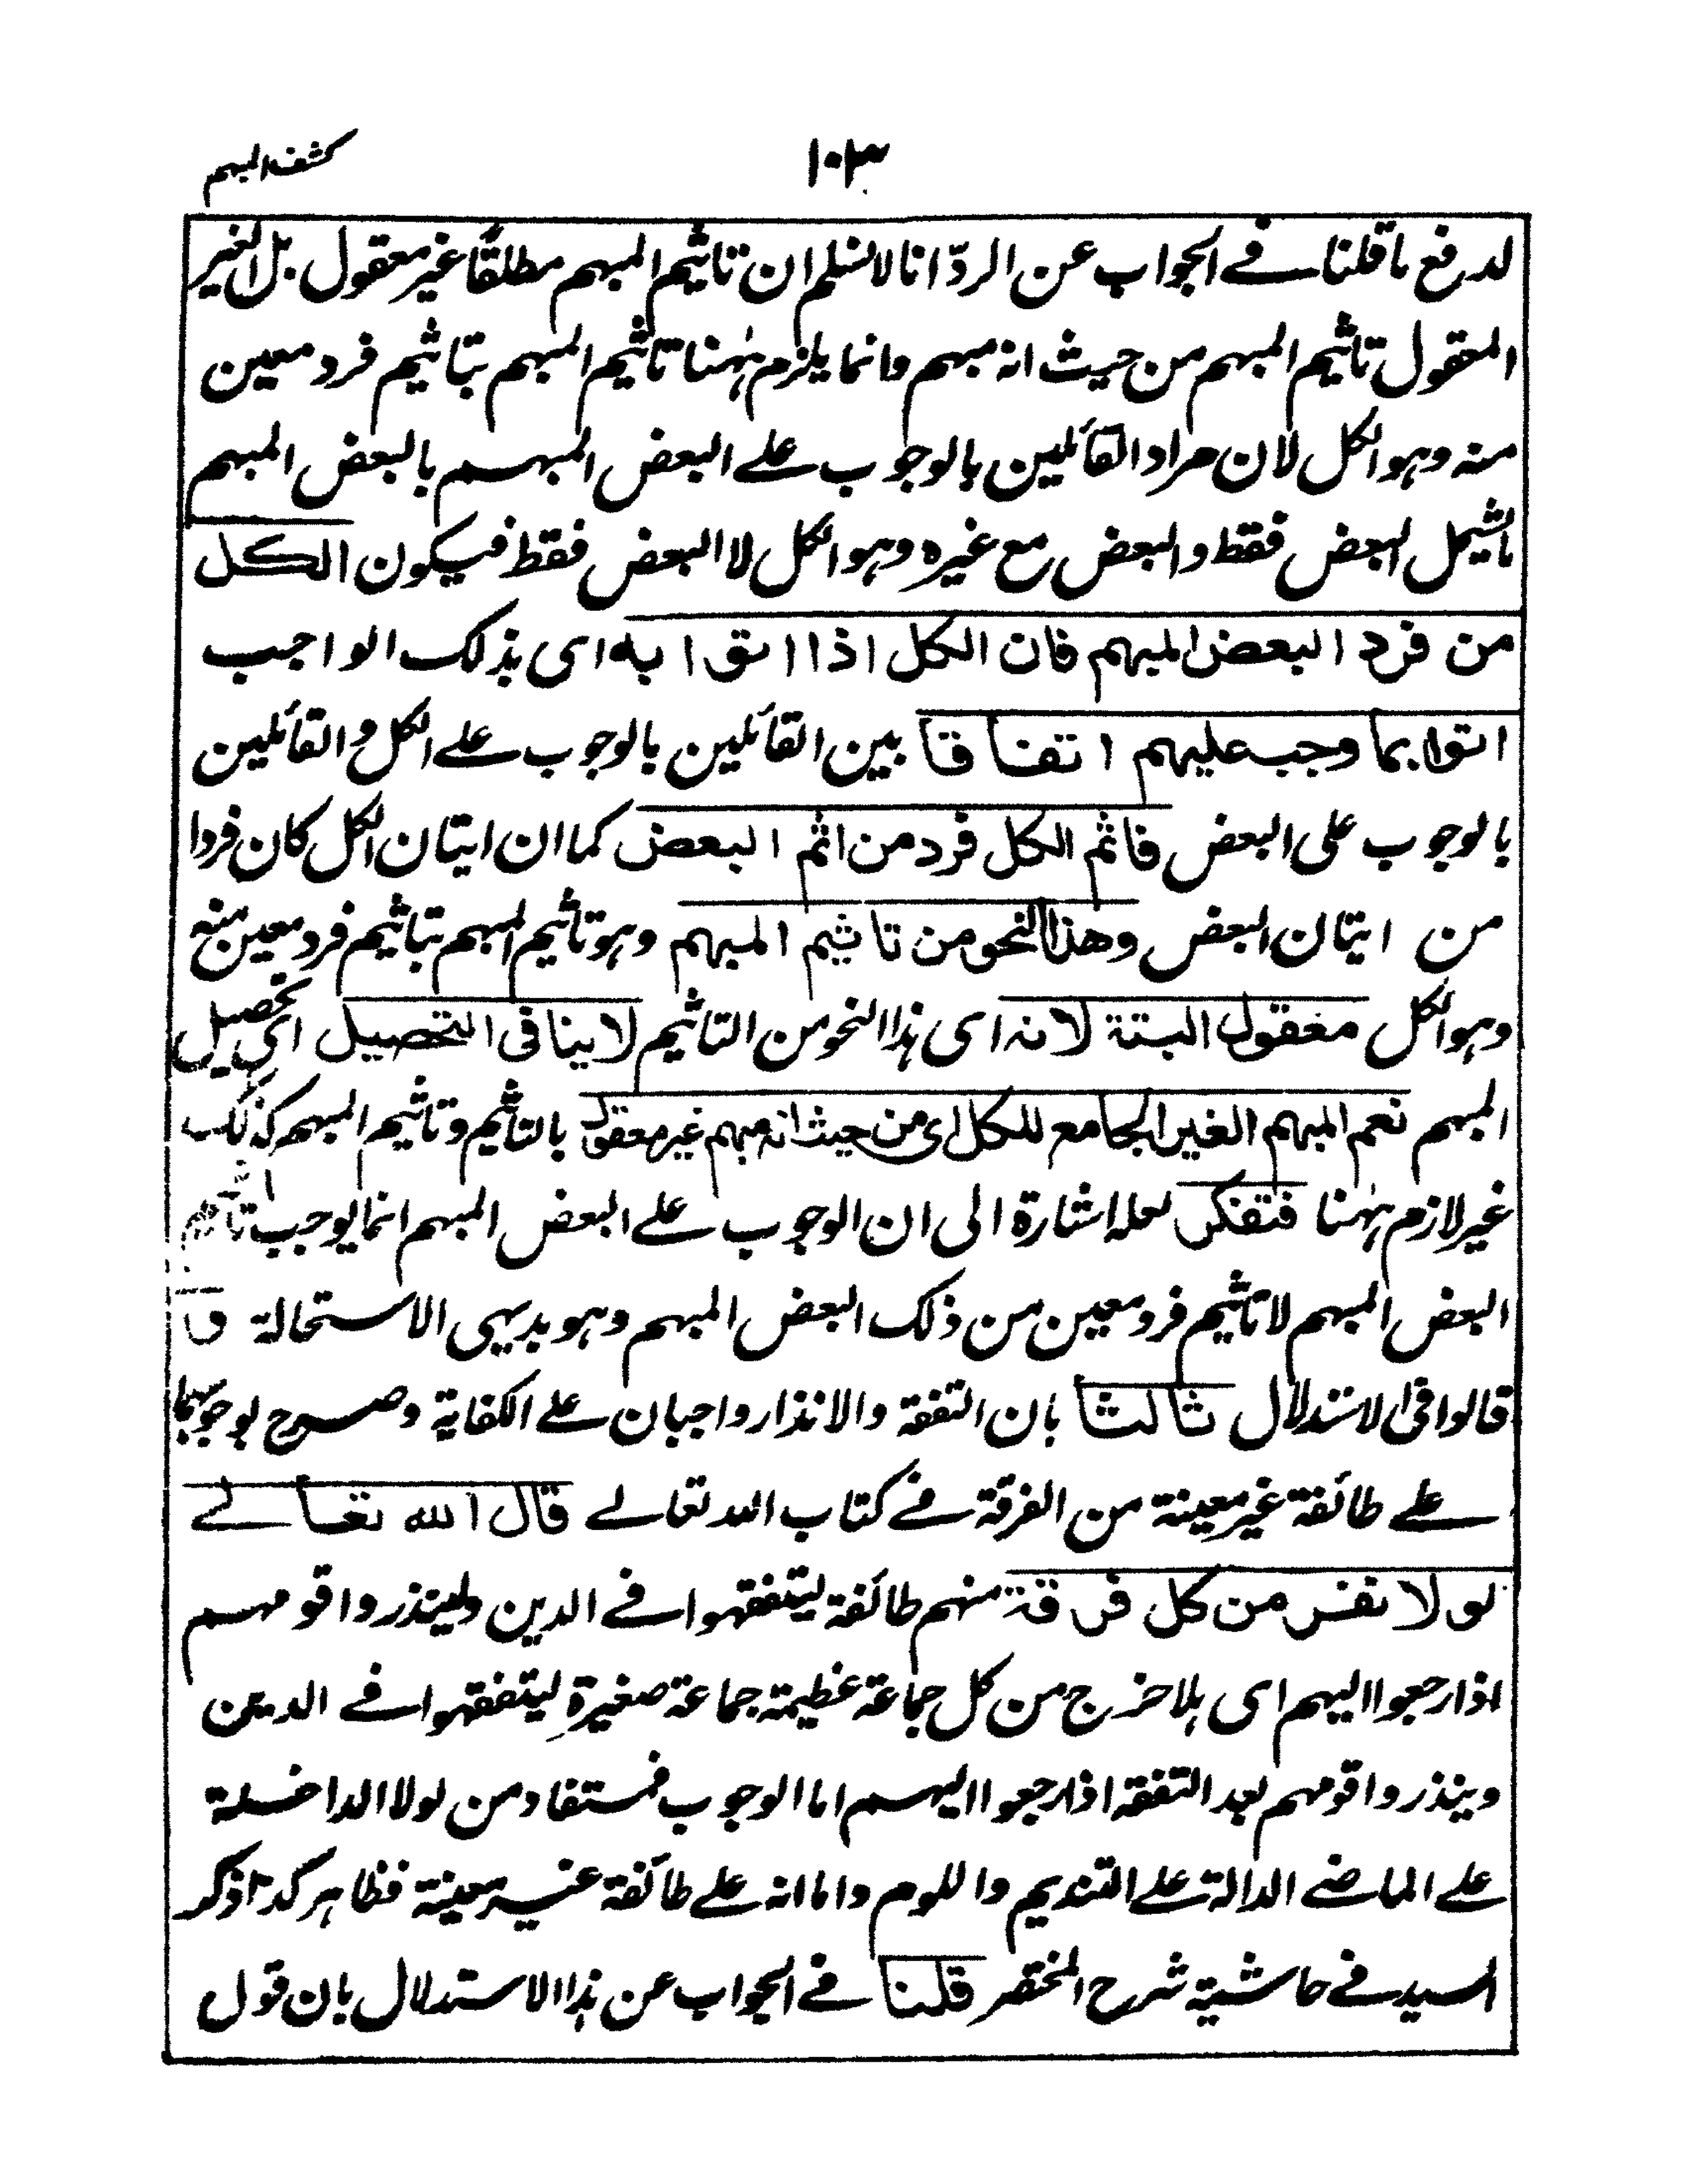 كشف المبهم
١٠٣
لدرفع ما قلنا فے الجواب عن الردّ انا لا نسلم ان تاثيم المبهم مطلقًا غير معقول بل الغير
المعقول تاثيم المبهم من حيث انه مبهم وانما يلزم ههنا تاثيم المبهم بتاثيم فرد معين
منه وهو الكل لان مراد القائلين بالوجوب علے البعض المبهم بالبعض المبهم
ما شيمل البعض فقط والبعض مع غيره وهو الكل لا البعض فقط فيكون الكل
من فرد البعض المبهم فان الكل اذا اتوا به اى بذلك الواجب
اتوا بما وجب عليهم اتفاقا بين القائلين بالوجوب علے الكل والقائلين
بالوجوب على البعض فاثم الكل فرد من اثم البعض كما ان ايتان الكل كان فردا
من ايتان البعض وهذا النحو من تاثيم المبهم وهو تاثيم المبهم بتاثيم فرد معين منه
وهو الكل معقول البتة لانه اى هذا النحو من التاثيم لا ينافى التحصيل اى تحصيل
المبهم نعم المبهم الغير الجامع للكل اى من حيث انه مبهم غير معقول بالتاثيم وتاثيم المبهم كذلك
غير لازم ههنا فتفكر لعله اشارة الى ان الوجوب علے البعض المبهم انما يوجب تاثيم
البعض المبهم لا تاثيم فرد معين من ذلك البعض المبهم وهو بديهى الاستحالة و
قالوا فى الاستدلال ثالثا بان التفقه والانذار واجبان علے الكفاية وصرح بوجوبهما
علے طائفة غير معينة من الفرقة فے كتاب الله تعالے قال الله تعالے
لولا نفر من كل فرقة منهم طائفة ليتفقهوا فے الدين ولينذروا قومهم
اذا رجعوا اليهم اى هلا خرج من كل جماعة عظيمة جماعة صغيرة ليتفقهوا فے الدين
وينذروا قومهم بعد التفقه اذا رجعوا اليهم اما الوجوب فمستفاد من لولا الداخلة
علے الماضے الدالة علے التنديم واللوم واما انه علے طائفة غير معينة فظاهر كذا ذكر
السيد فے حاشية شرح المختصر قلنا فے الجواب عن هذا الاستدلال بان قول